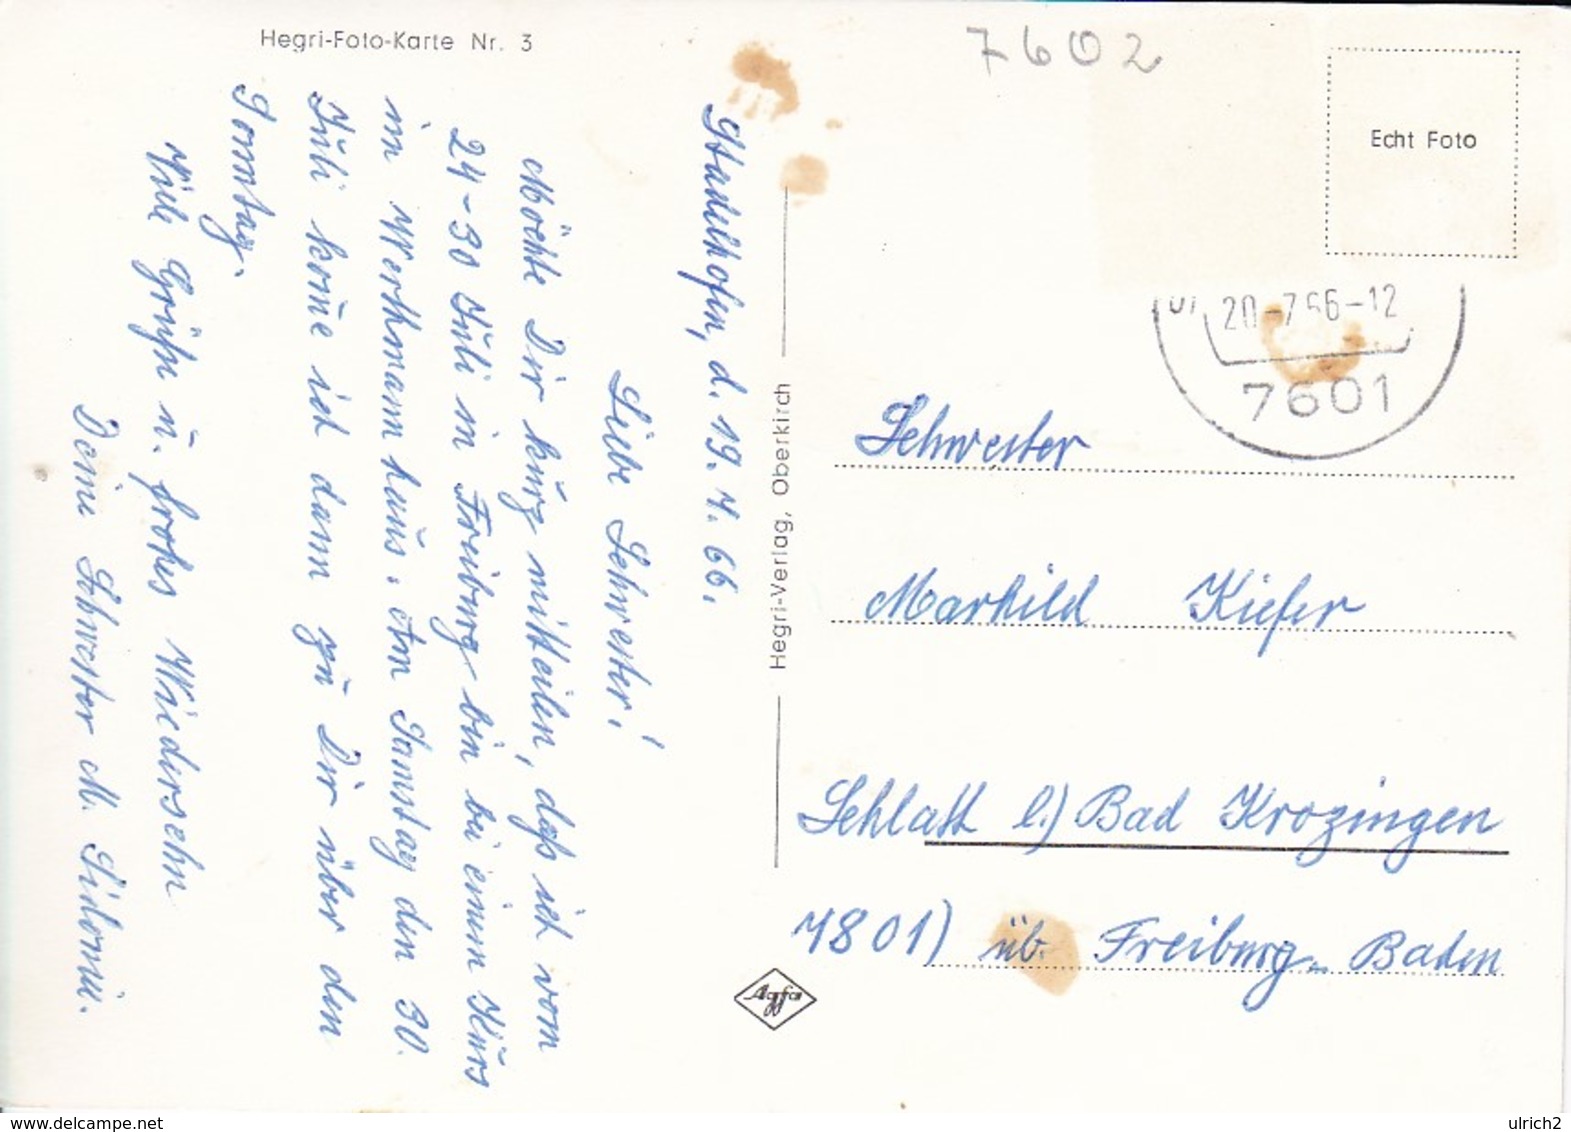 Hegri-Foto-Karte Nr. 3
7602
Stadelhofen, d. 19.7.66.
Liebe Schwester!
Möchte Dir kurz mitteilen, daß ich vom
24-30 Juli in Freiburg bin bei einem Kurs
im Werthmannhaus. Am Samstag den 30.
Juli kom̄e ich dann zu Dir über den
Sonntag.
Viele Grüße u. frohes Wiedersehn
Deine Schwester M. Sidonie.
Hegri-Verlag, Oberkirch
Agfa
Echt Foto
20.-7.66-12
7601
Schwester
Marhild Kiefer
Schlatt b.) Bad Krozingen
7801) üb. Freiburg- Baden
delcampe.net
ulrich2